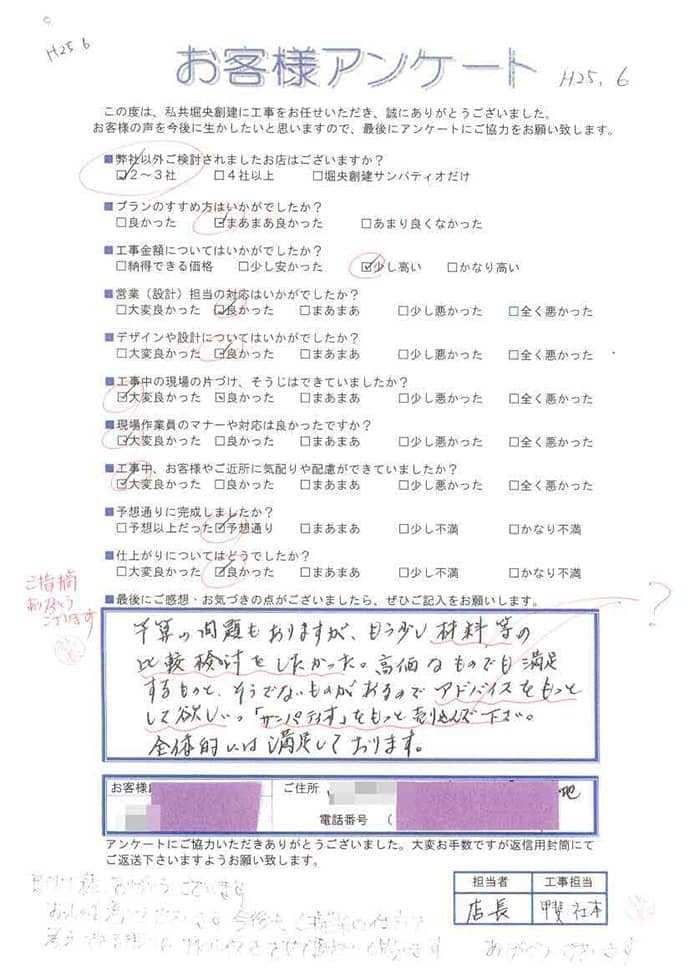 H25.6
お客様アンケート
H25.6
この度は、私共堀央創建に工事をお任せいただき、誠にありがとうございました。
お客様の声を今後に生かしたいと思いますので、最後にアンケートにご協力をお願い致します。
■弊社以外ご検討されましたお店はございますか?
☑2～3社 □4社以上 □堀央創建サンパティオだけ
■プランのすすめ方はいかがでしたか?
□良かった ☑まあまあ良かった □あまり良くなかった
■工事金額についてはいかがでしたか?
□納得できる価格 □少し安かった ☑少し高い □かなり高い
■営業(設計)担当の対応はいかがでしたか?
□大変良かった ☑良かった □まあまあ □少し悪かった □全く悪かった
■デザインや設計についてはいかがでしたか?
□大変良かった ☑良かった □まあまあ □少し悪かった □全く悪かった
■工事中の現場の片づけ、そうじはできていましたか?
☑大変良かった ☑良かった □まあまあ □少し悪かった □全く悪かった
■現場作業員のマナーや対応は良かったですか?
☑大変良かった □良かった □まあまあ □少し悪かった □全く悪かった
■工事中、お客様やご近所に気配りや配慮ができていましたか?
☑大変良かった □良かった □まあまあ □少し悪かった □全く悪かった
■予想通りに完成しましたか?
□予想以上だった ☑予想通り □まあまあ □少し不満 □かなり不満
■仕上がりについてはどうでしたか?
□大変良かった ☑良かった □まあまあ □少し悪かった □かなり不満
■最後にご感想・お気づきの点がございましたら、ぜひご記入をお願いします。
ご指摘
ありがとう
ございます
?
予算の問題もありますが、もう少し材料等の
比較検討をしたかった。高価なものでも満足
するものと、そうでないものがあるのでアドバイスをもっと
して欲しい。「サンパティオ」をもっと売り込んで下さい。
全体的には満足しております。
お客様 ご住所 地
電話番号 (
アンケートにご協力いただきありがとうございました。大変お手数ですが返信用封筒にて
ご返送下さいますようお願い致します。
担当者 工事担当
店長 甲斐 社本
ありがとうございます